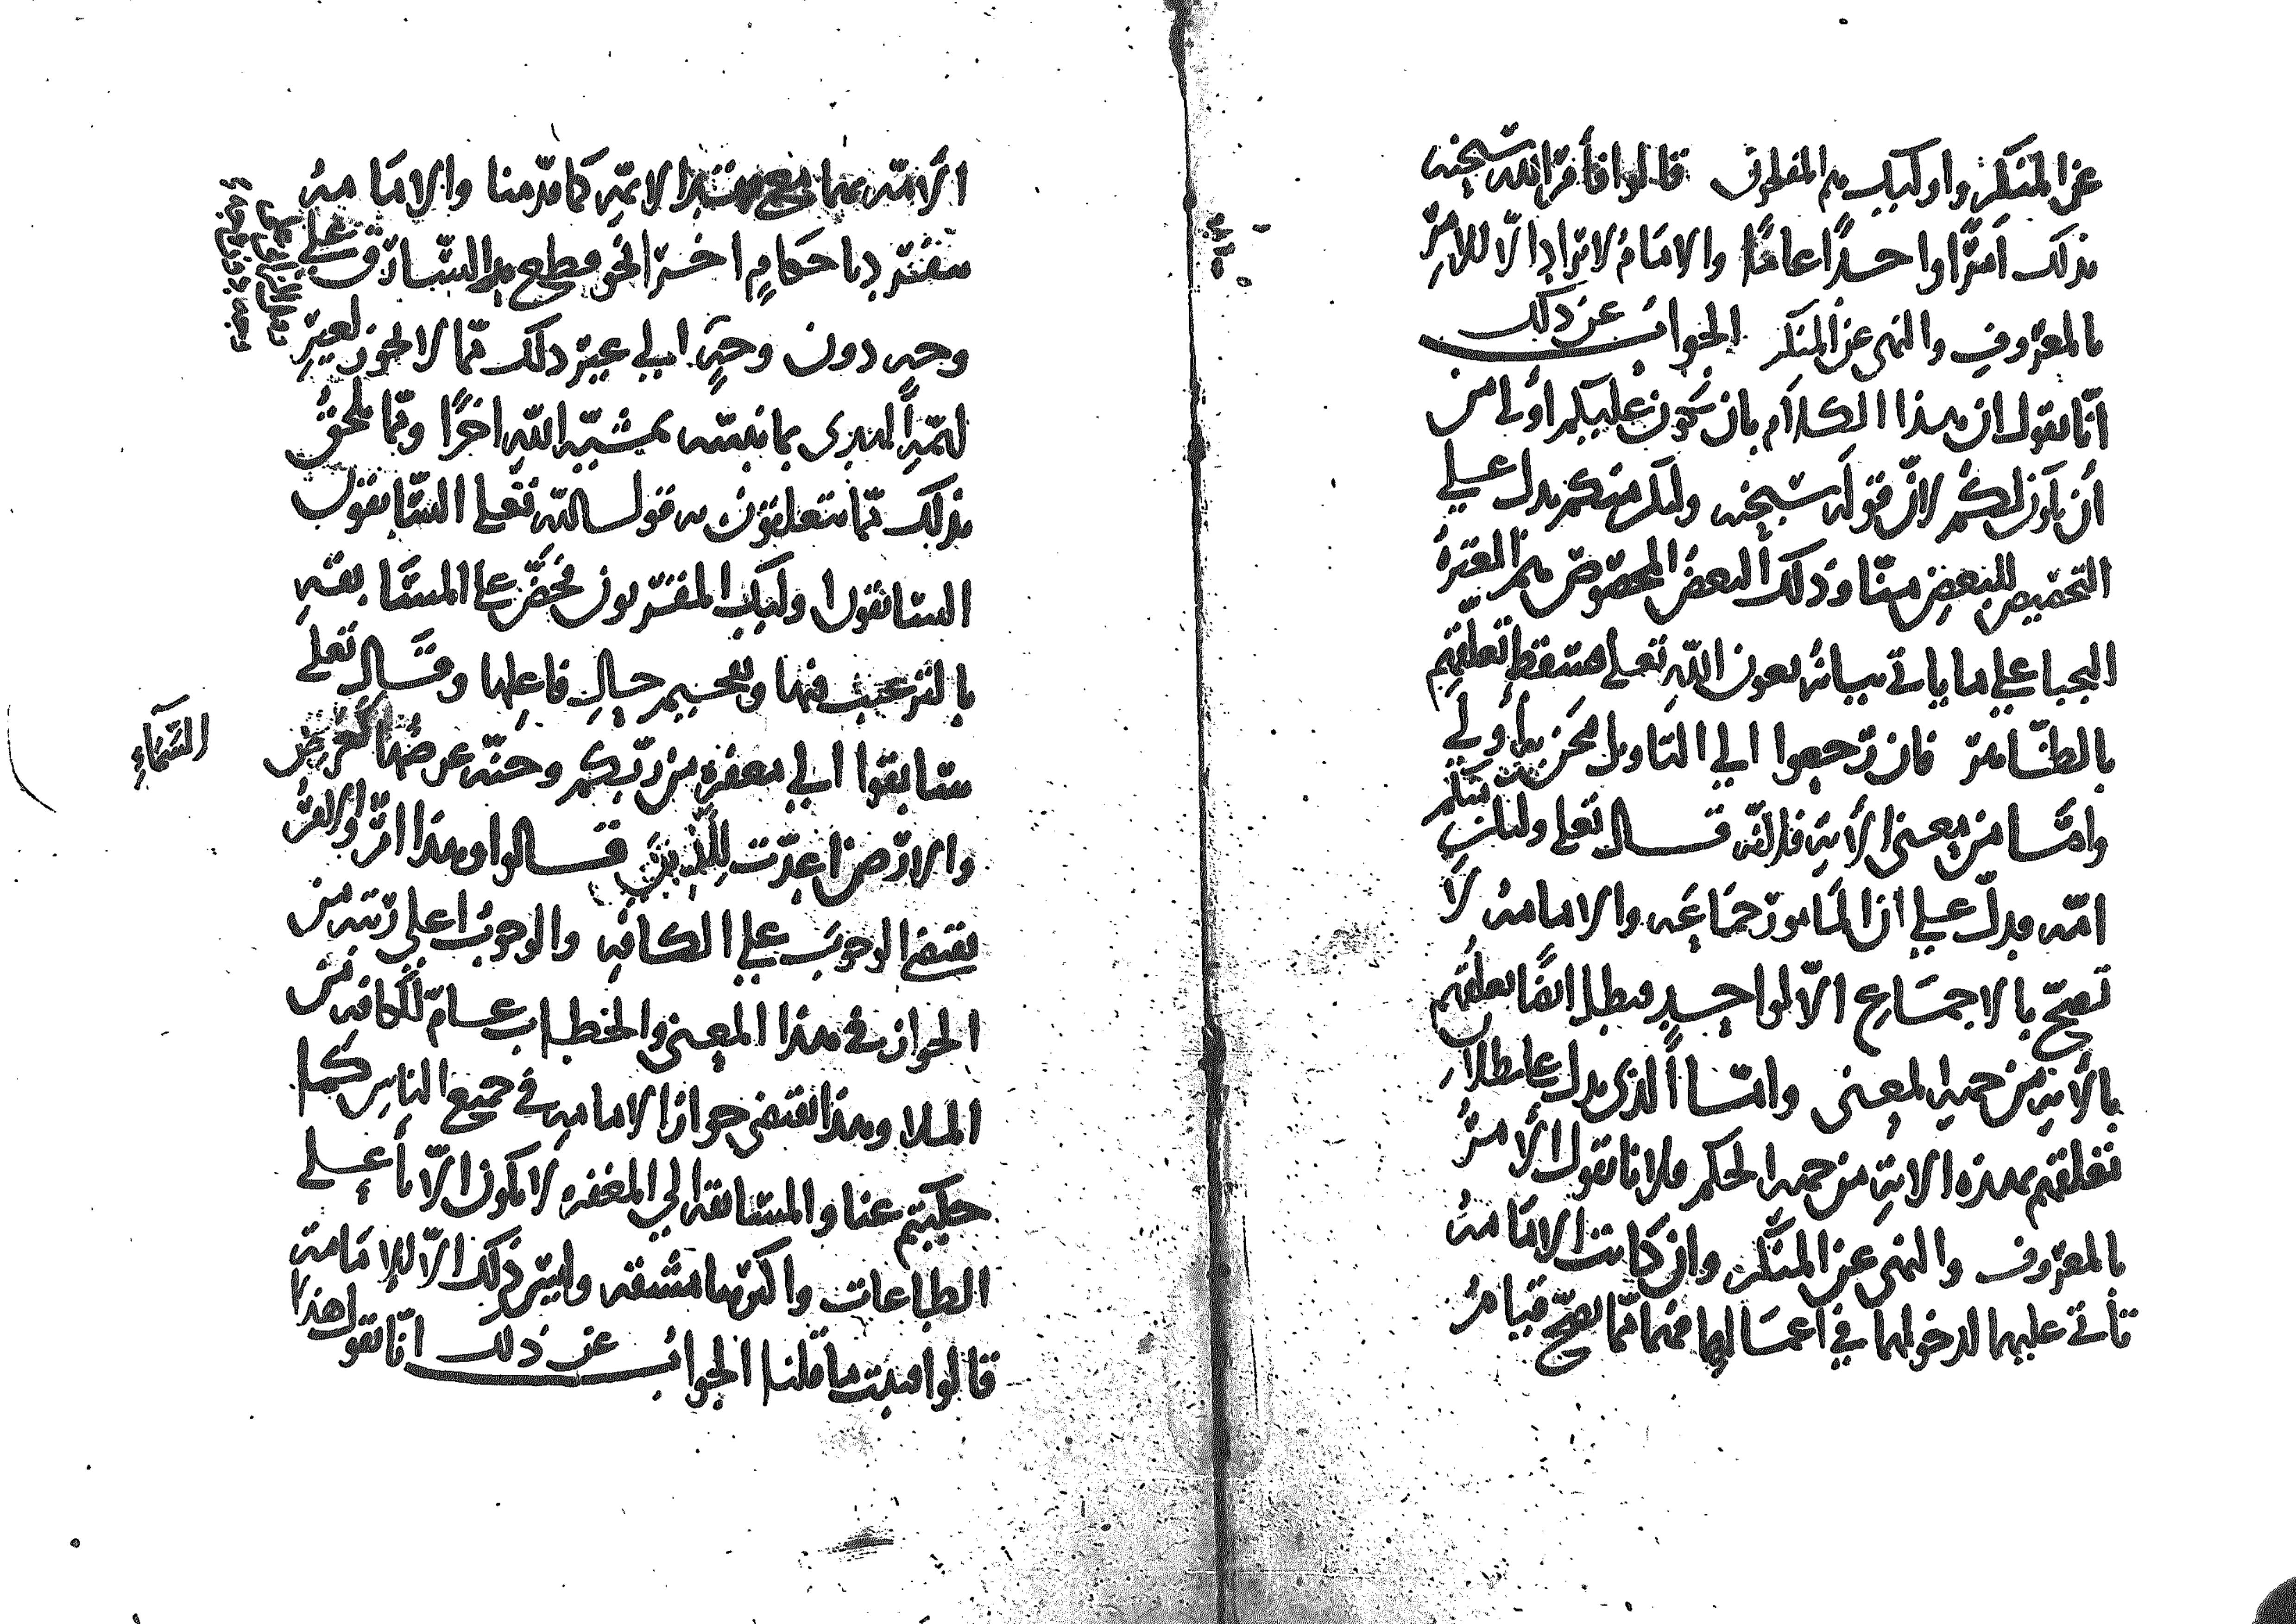 عن المنكر واولئك هم المفلحون قالوا فأمر الله سبحنه
بذلك امرًا واحدًا عامًا والامام لا يراد الا للامر
بالمعروف والنهى عن المنكر الجواب عن ذلك
انا نقول ان هذا الكلام بان يكون عليكم أولى من
أن يكون لكم لان قوله سبحنه ولتكن منكم يدل على
التخصيص للبعض منا وذلك البعض المخصوص هم العترة
على ما ياتي بيانه بعون الله تعلى فسقط تعلقهم
بالظاهر فان رجعوا الى التاويل فنحن به أولى
واما من معنى الأية فالله قال تعلى ولتكن منكم
امة فدل على ان المامور جماعة والامامة لا
تصح بالاجماع الا لواحد فبطل ايضًا تعلقهم
بالأية من جهة المعنى واما الذى يدل على بطلان
تعلقهم بهذه الاية من جهة الحكم فلانا نقول الأمر
بالمعروف والنهى عن المنكر وان كانت الامامة
تأتي عليهما لدخولهما في اعمالها فهما مما يصح قيام
الأمة بهما مع الايمة كما قدمنا والامامة
تنفرد باحكام اخر نحو قطع يد السارق على
وجه دون وجه الى غير ذلك مما لا يجوز لغير
بمشية الله اخرًا ومما يلحق
بذلك مما يتعلقون به قول الله تعلى السابقون
السابقون اوليك المقربون فحض على المسابقة
بالترغيب فيها وتعظيم حال فاعلها وقال تعلى
سابقوا الى مغفرة من ربكم وجنة عرضها كعرض
السماء
والارض اعدت للذين قالوا وهذا امر والامر
يقتضى الوجوب على الكافة والوجوب اعلى رتبة من
الجواز في هذا المعنى والخطاب عام للكافة من
الملا وهذا يقتضى جواز الامامة في جميع الناس كما
حكيتم عنا والمسابقة الى المغفرة لا يكون الا بأعلى
الطاعات واكثرها مشقة وليس ذلك الا للامامة
قالوا فثبت ما قلنا الجواب عن ذلك انا نقول هذا